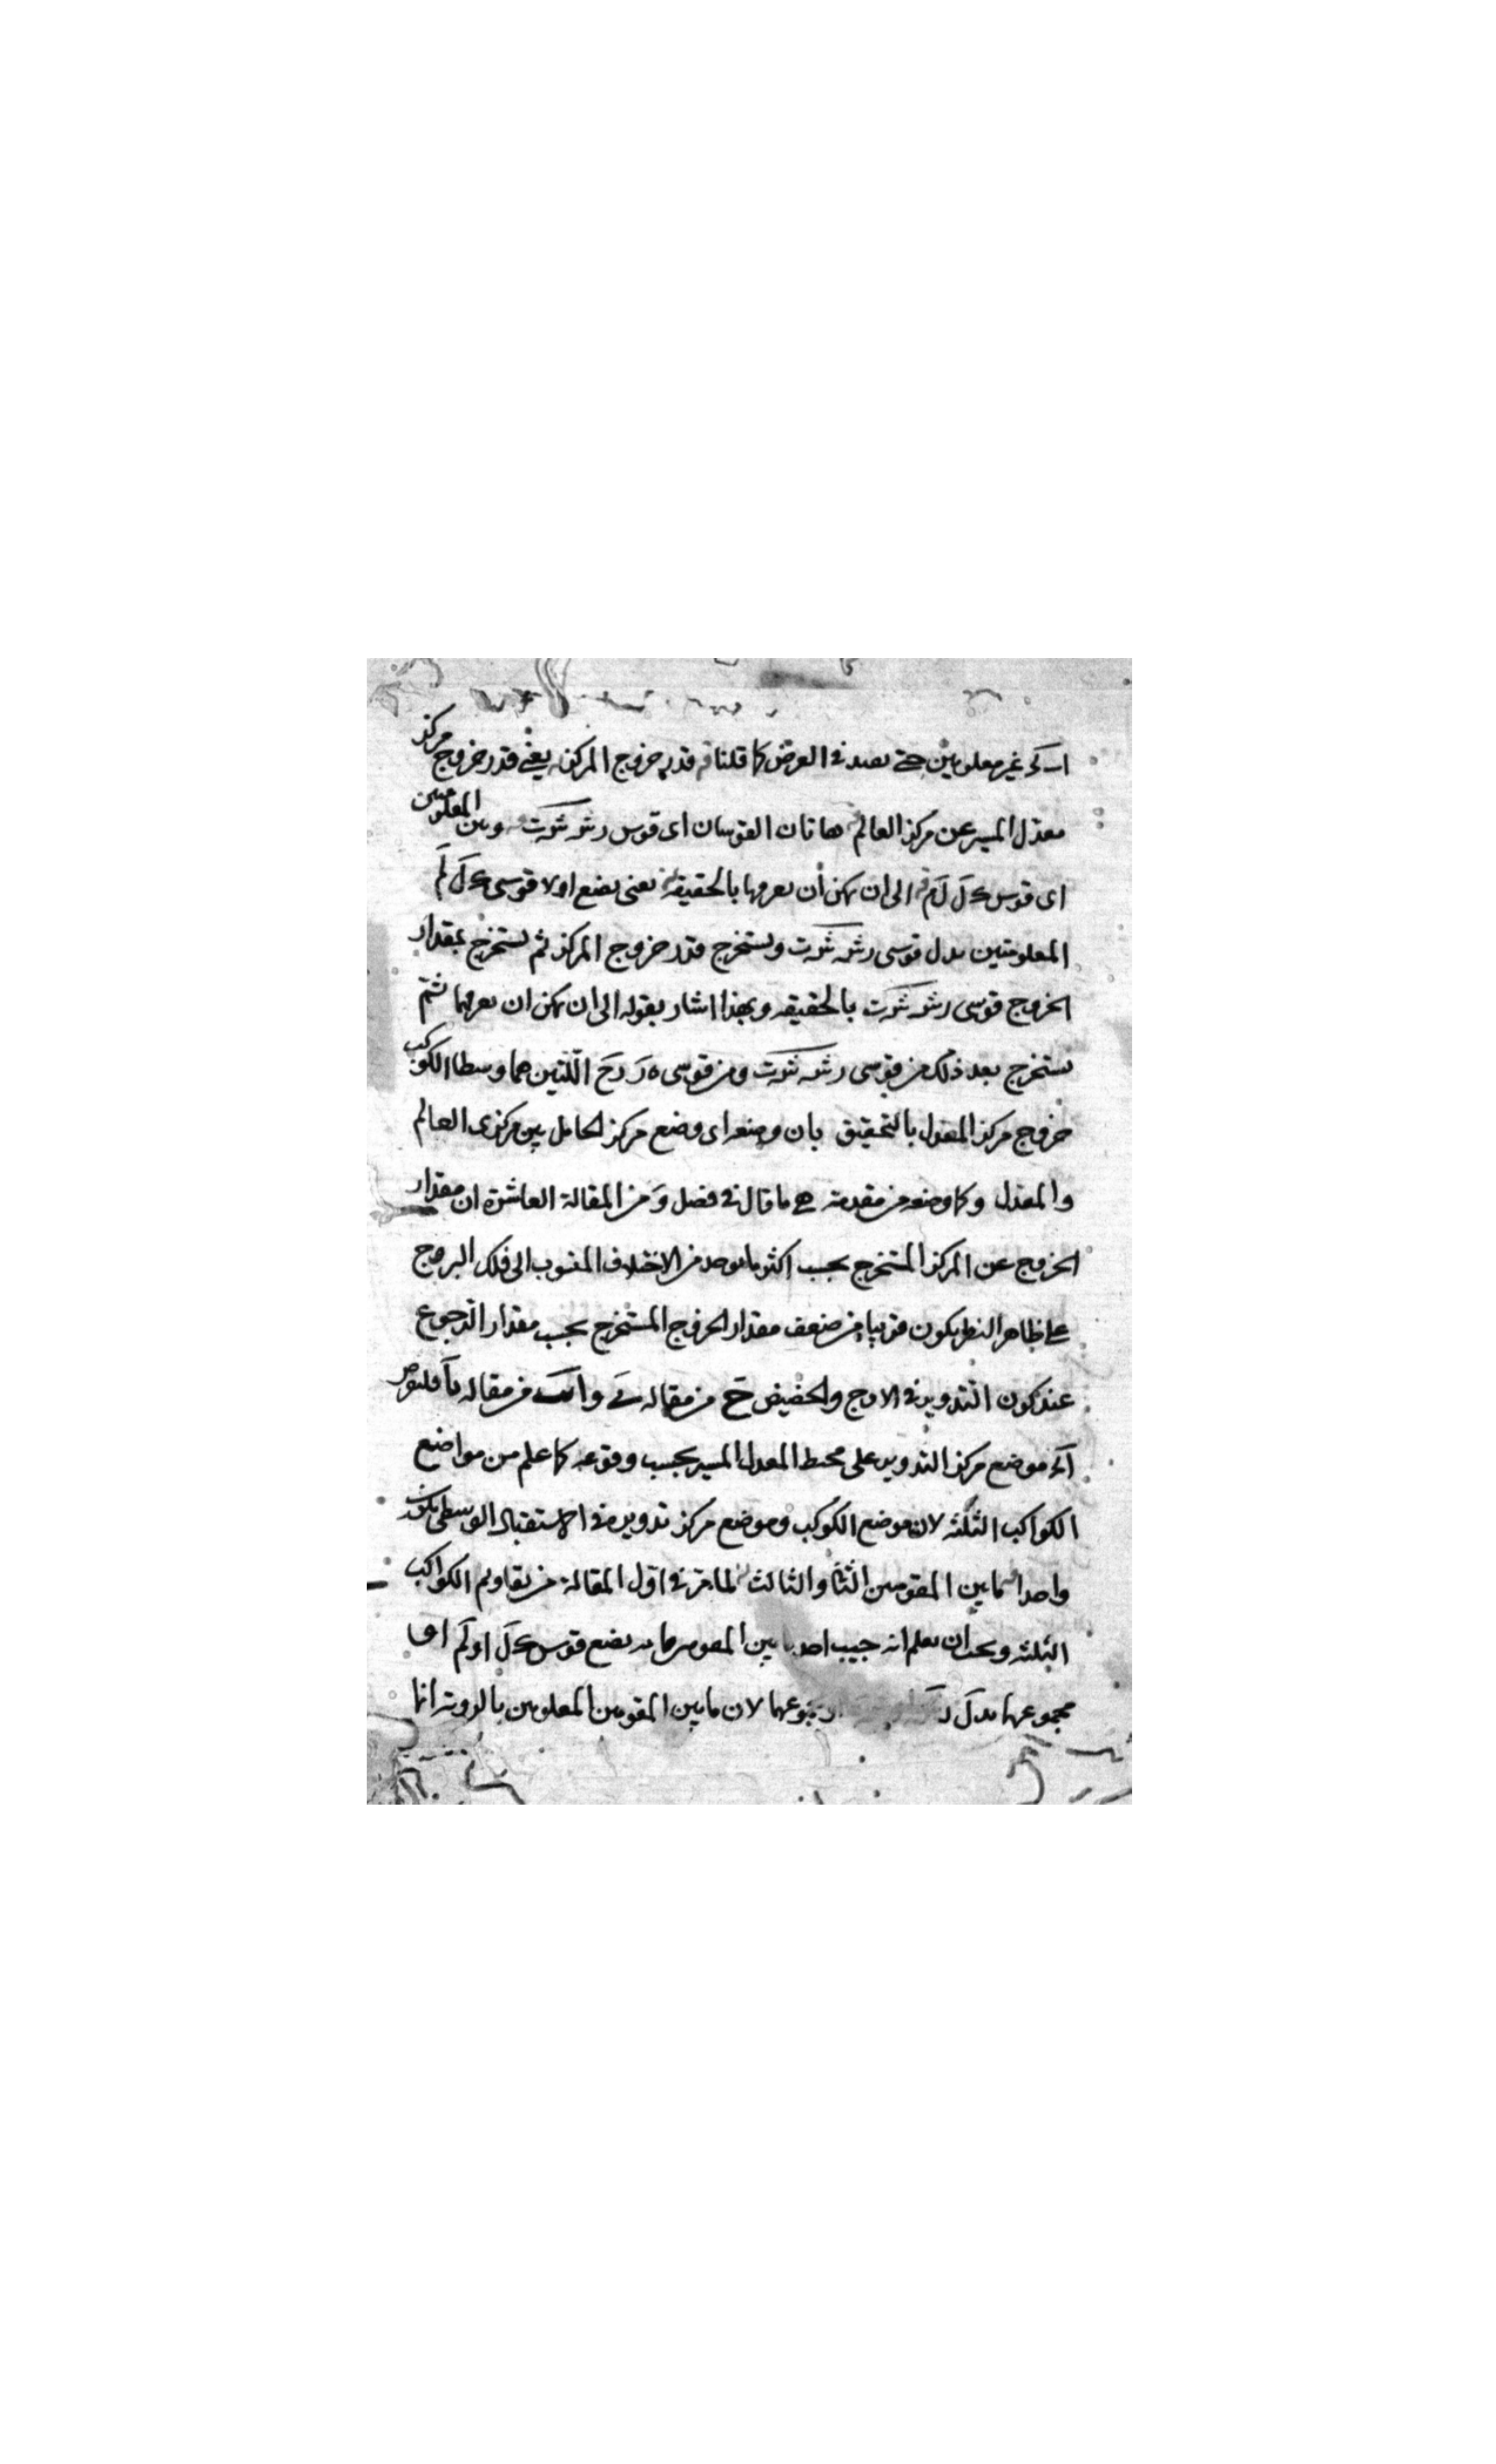 اٮ كٓ غير معلومين حتى نصير فى العرض كما قلنا فى قدر خروج المركز يعنى قدر خروج مركز
معدل المسير عن مركز العالم هاتان القوسان اى قوس رشٓ شٓ تٓ وبين المعلومتين
اى قوس كٓ لٓ لٓ مٓ الى ان يمكن ان نعرفها بالحقيقة يعنى نضع اولا قوسى كٓ لٓ لٓمٓ
المعلومتين بدل قوسى رشٓ شٓتٓ ونستخرج قدر خروج المركز ثم نستخرج بمقدار
الخروج قوسى رشٓ شٓتٓ بالحقيقه وبهذا اشار بقوله الى ان يمكن ان نعرفهما ثم
نستخرج بعد ذلك من قوسى رشٓ شٓتٓ ومن قوسى ه رٓ رحٓ اللتين هما وسطا الكوكب
خروج مركز المعدل بالتحقيق بان وضع اى وضع مركز الحامل بين مركزى العالم
والمعدل وكما وضعه من مقدمة هى ما قال فى فصل وٓ من المقالة العاشرة ان مقدار
الخروج عن المركز المستخرج بحسب اكثر ما يوجد من الاختلاف المنسوب الى فلك البروج
على ظاهر النظر يكون قريبا من ضعف مقدار الخروج المستخرج بحسب مقدار الرجوع
عند كون التدوير فى الاوج والحضيض من مقاله من مقاله يآ فليعرض
موضع مركز التدوير على محيط المعدل المسير بحسب وقوعه كما علم من مواضع
الكواكب الثلثه لان موضع الكوكب وموضع مركز تدويره فى الاستقبال الوسطى يكون
واحدا ما بين المقومين الثانى والثالث لما مر فى اول المقالة من تقاويم الكواكب
الثلثه ويجب ان نعلم انه بين نضع قوس كٓ لٓ او لٓمٓ
مجموعهما بدل مجموعهما لان ما بين المقومين المعلومين بالرويه انما